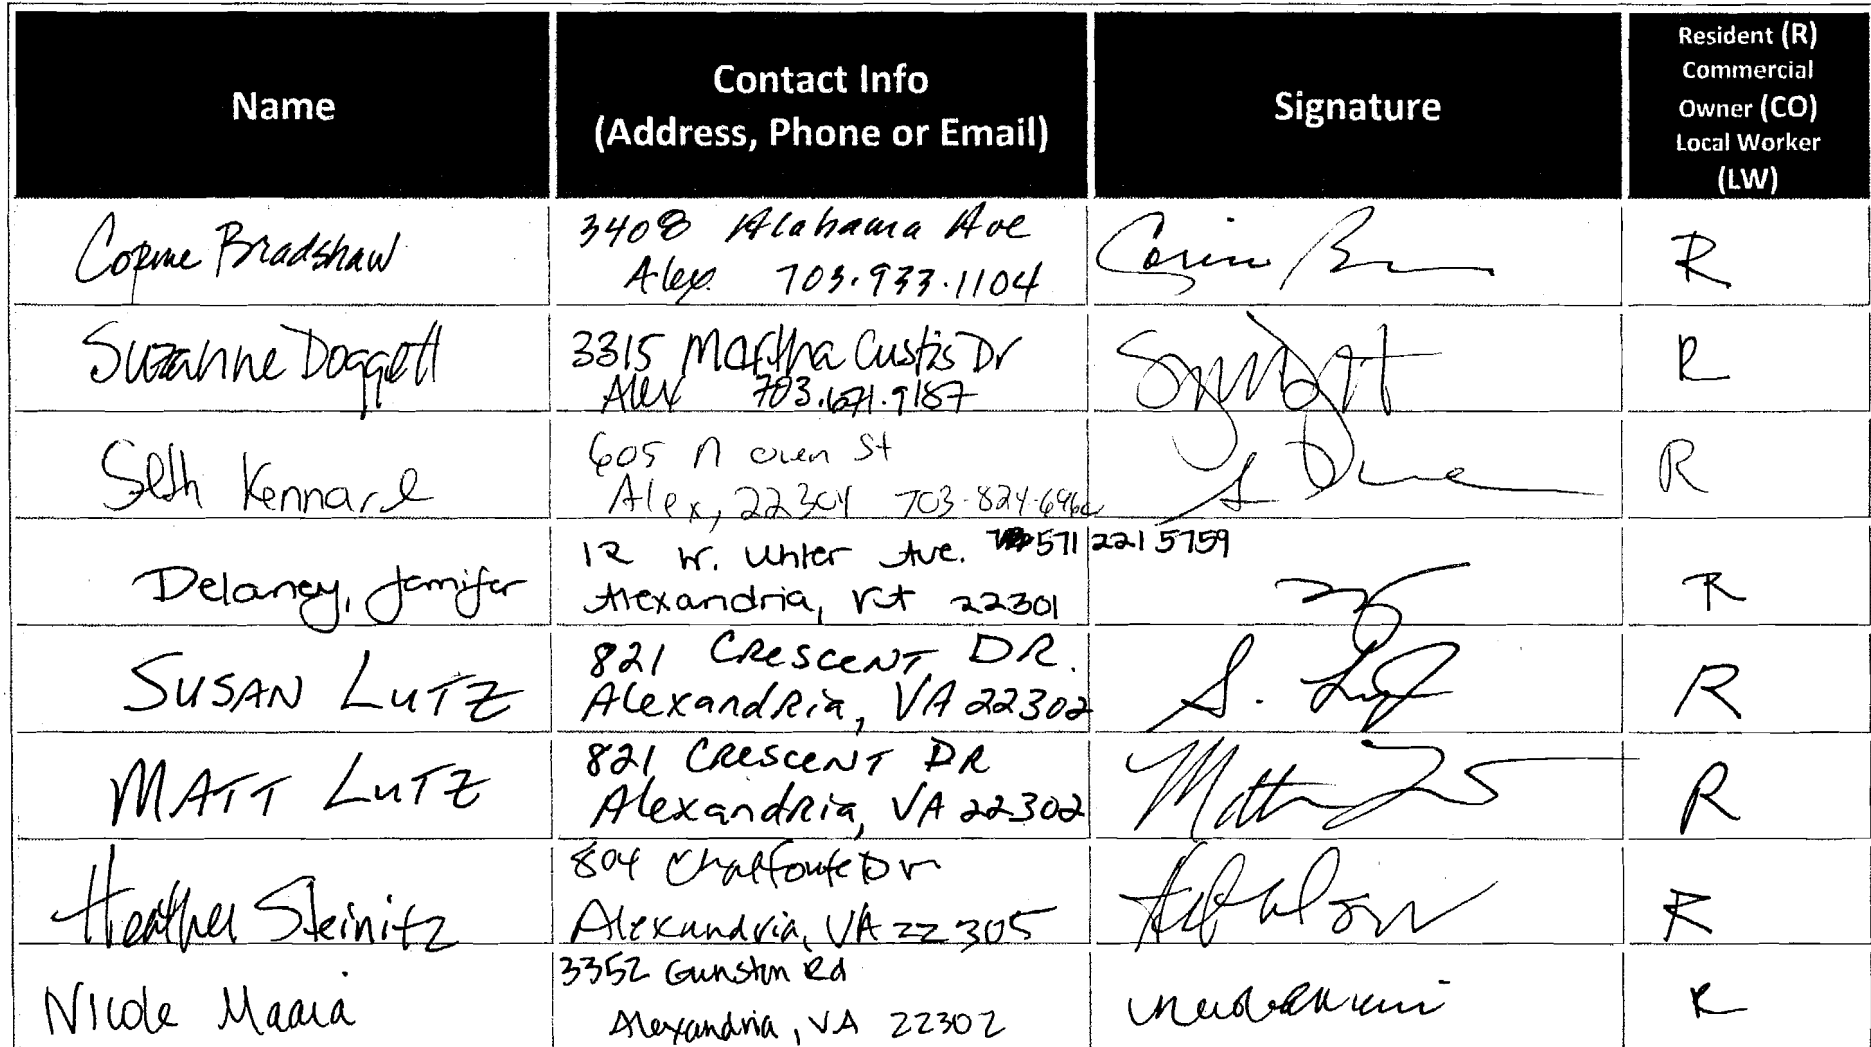 Name
Contact Info
(Address, Phone or Email)
Signature
Resident (R)
Commercial
Owner (CO)
Local Worker
(LW)
Corine Bradshaw
3408 Alabama Ave
Alex. 703.933.1104
R
Suzanne Doggett
3315 Martha Custis Dr
Alex 703.671.9187
R
Seth Kennard
605 N Owen St
Alex, 22304 703-824-
R
Delaney, Jennifer
12 W. Ave. 571 221 5759
Alexandria, VA 22301
R
SUSAN LUTZ
821 CRESCENT DR.
AlexandRia, VA 22302
S. Lutz
R
MATT LUTZ
821 CRESCENT DR
AlexandRia, VA 22302
R
Heather Steinitz
804 Chalfonte Dr
Alexandria, VA 22305
R
Nicole
3352 Gunston Rd
Alexandria, VA 22302
R